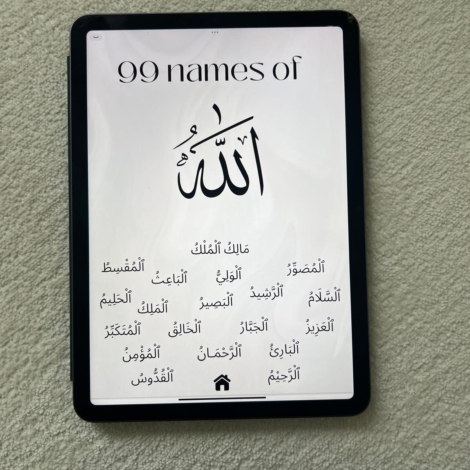 99 names of
الله
مَالِكُ ٱلْمُلْكُ
ٱلْمُصَوِّرُ ٱلْوَلِيُّ ٱلْبَاعِثُ ٱلْمُقْسِطُ
ٱلسَّلَامُ ٱلْرَّشِيدُ ٱلْبَصِيرُ ٱلْمَلِكُ ٱلْحَلِيمُ
ٱلْعَزِيزُ ٱلْجَبَّارُ ٱلْخَالِقُ ٱلْمُتَكَبِّرُ
ٱلْبَارِئُ ٱلْرَّحْمَـانُ ٱلْمُؤْمِنُ
ٱلْرَّحِيْمُ ٱلْقُدُّوسُ